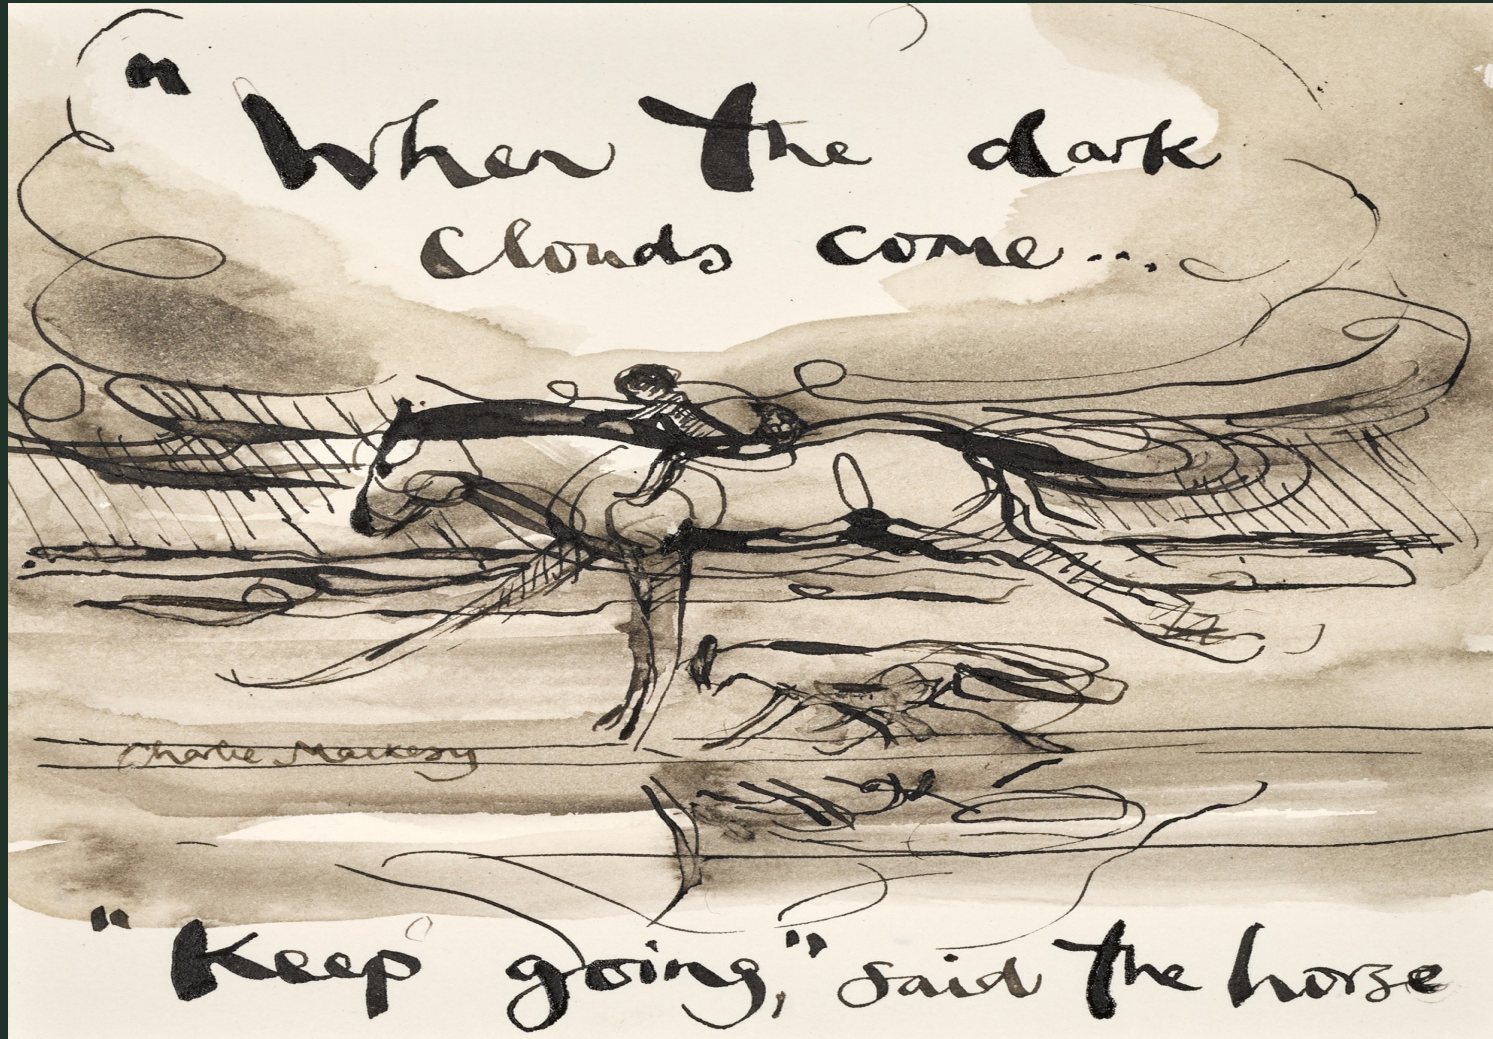 "When the dark
clouds come...
Charlie Mackesy
"Keep going," said the horse